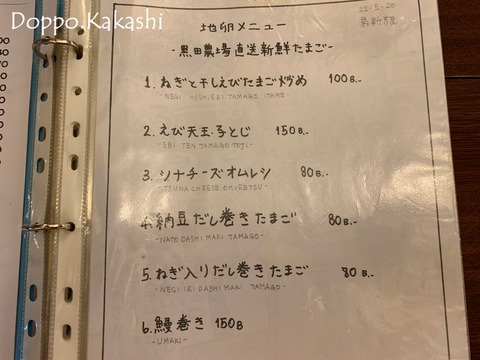 Doppo.Kakashi
22-5-20
地卵メニュー
-黒田農場直送新鮮たまご-
1. ねぎと干しえびたまご炒め 100B.
-NEGI HOSHIEBI TAMAGO ITAME-
2. えび天玉子とじ 150B.-
-EBI TEN TAMAGO TOJI-
3. ツナチーズオムレツ 80B.-
-TSUNA CHEESE OMURETSU-
4. 納豆だし巻きたまご 80B.-
-NATO DASHI MAKI TAMAGO-
5. ねぎ入りだし巻きたまご 80B.-
-NEGI IRI DASHI MAKI TAMAGO-
6. 鰻巻き 150B
-UMAKI-